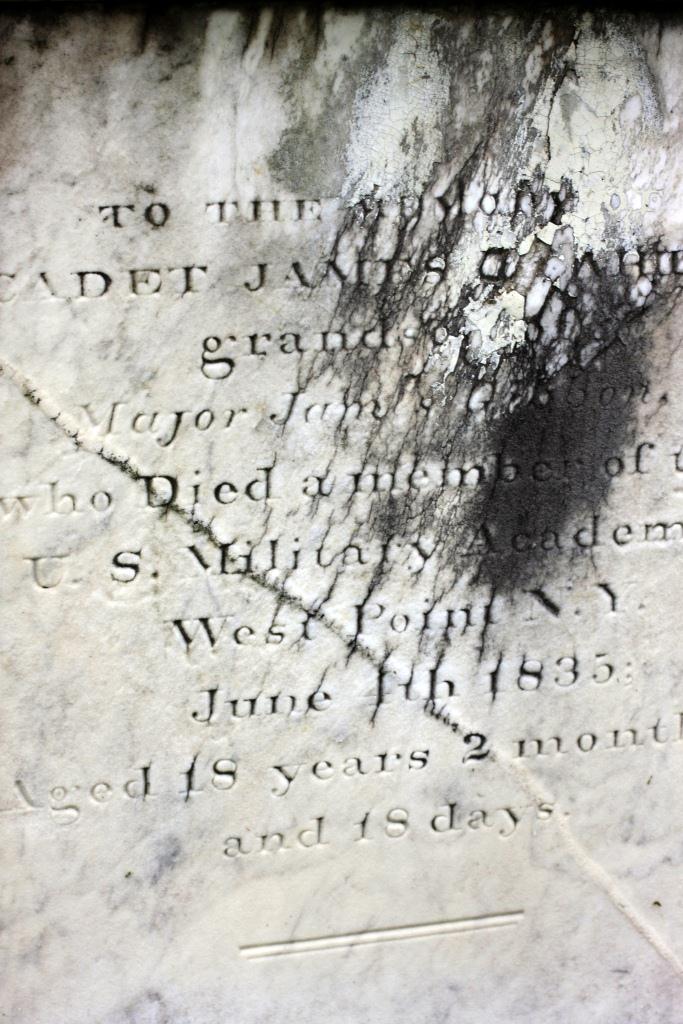 TO THE MEMORY OF
CADET JAMES
grandson
Major James
who Died a member of t
U. S. Military Academ
West Point N.Y.
June 1835;
Aged 18 years 2 month
and 18 days.